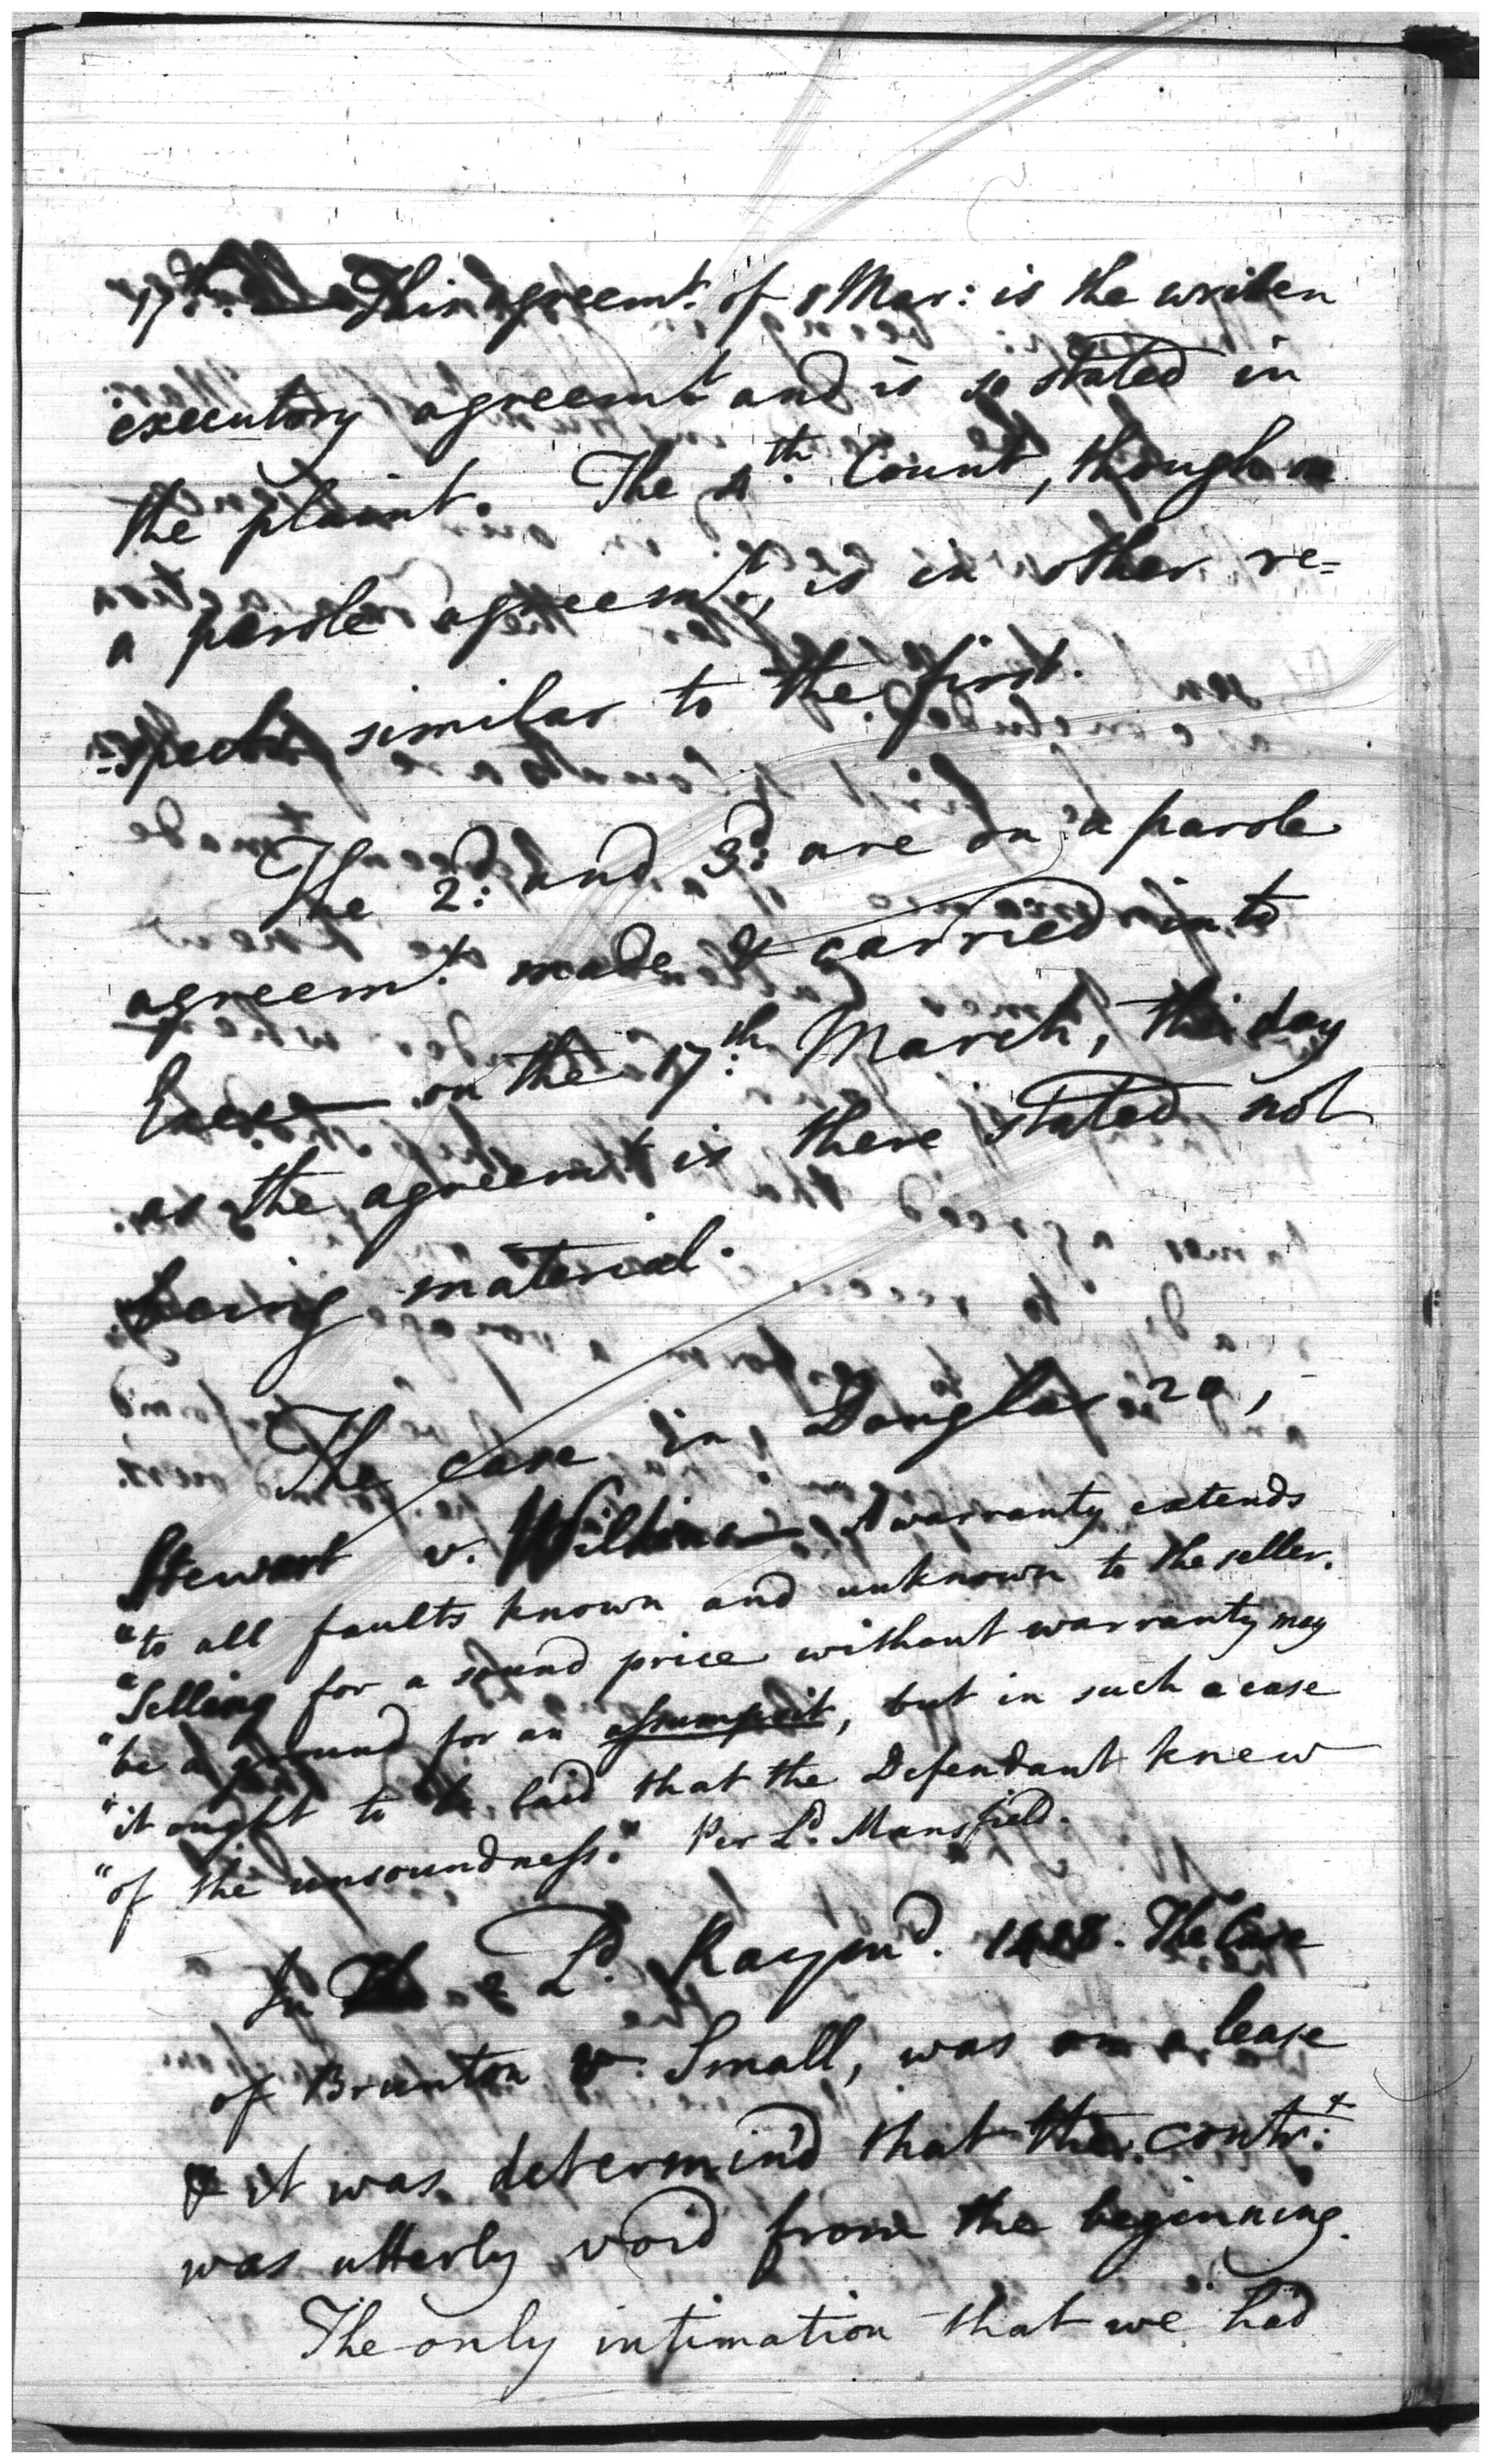 17th. This agreemt. of 8 Mar: is the written
executory agreemt and is so stated in
the plaint. The 4th. Count, though on
a parole agreemt., is in other re=
=spects similar to the first.
The 2: and 3d: are on a parole
agreemt. made & carried into
on the 17th. March, the day
as the agreemt is there stated not
being material.
The case in Douglas 20,
Stewart v. Wilkins A warranty extends
"to all faults known and unknown to the seller.
"Selling for a sound price without warranty may
"be a ground for an assumpsit, but in such a case
"it ought to be laid that the Defendant knew
"of the unsoundness." Per Ld. Mansfield.
In 2 Ld. Raymd. The Case
of Brunton v. Small, was on a lease
& it was determin'd that the contrt:
was utterly void from the beginning.
The only intimation that we had